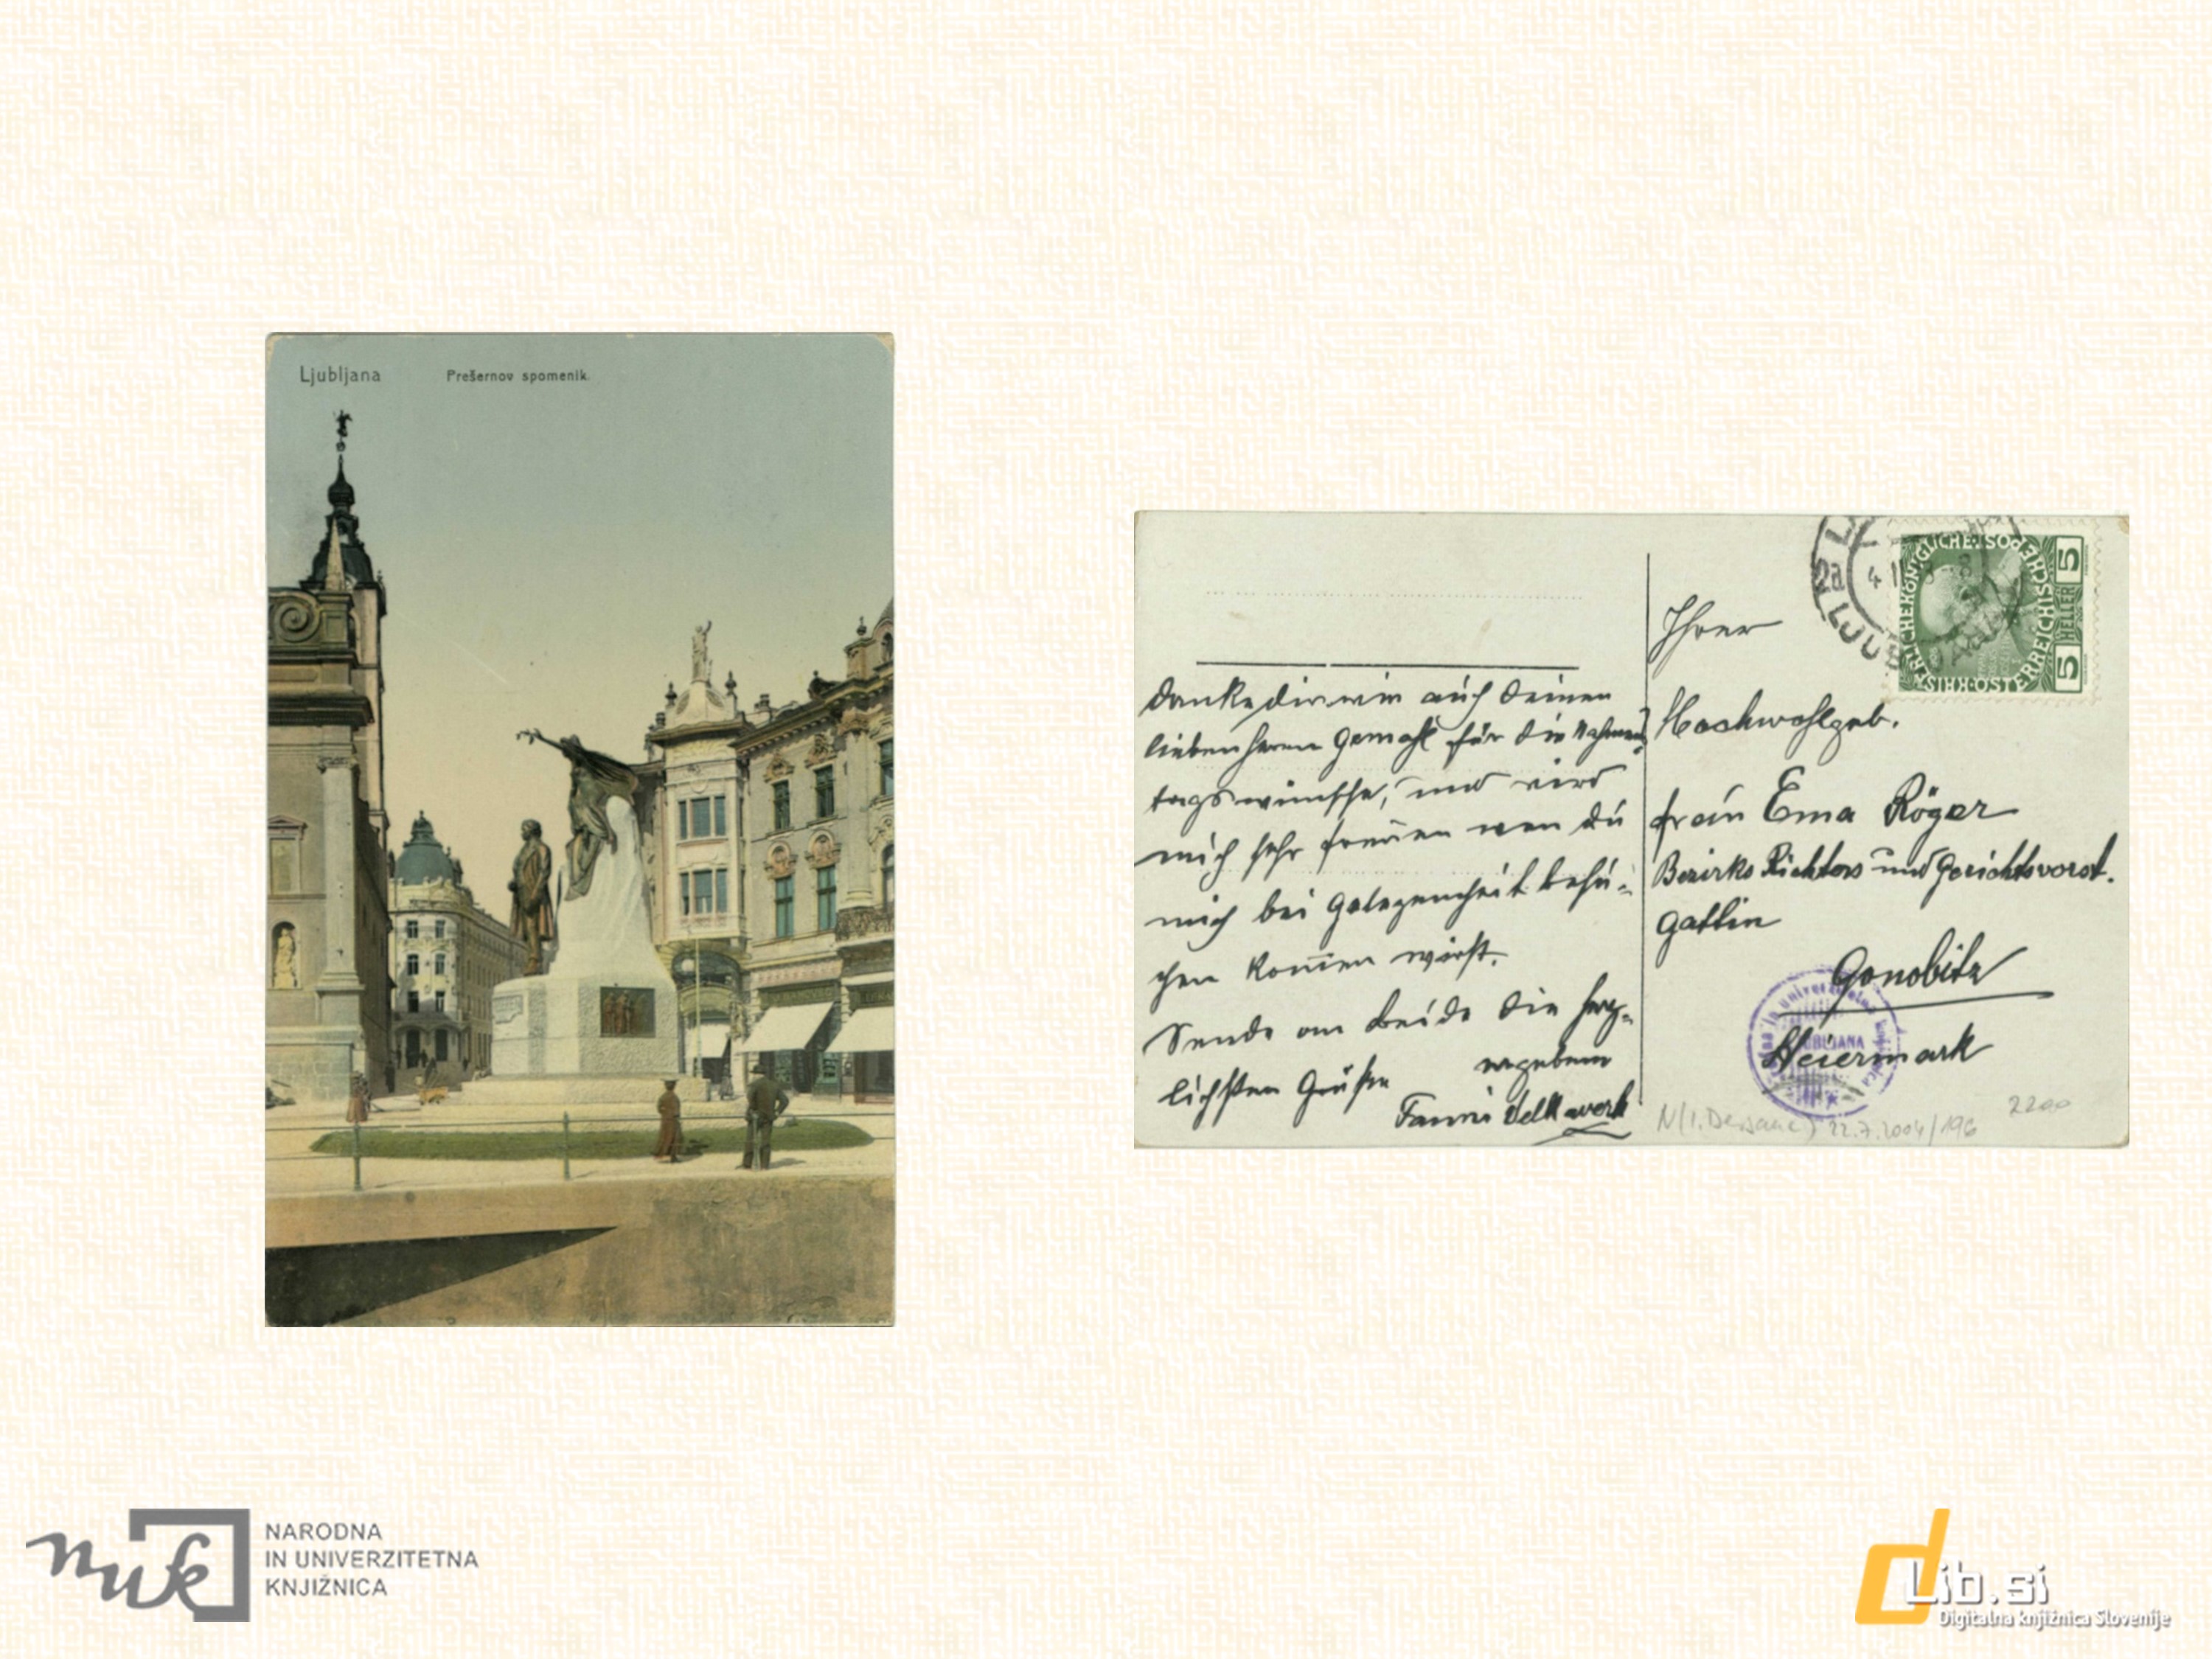 Ljubljana Prešernov spomenik.
Danke dir wie auch deinen
lieben Herrn Gemahl für die Nahmens
tagswünsche, und wird
mich sehr freuen wen du
mich bei Gelegenheit besu-
chen komen wirst.
Sende an Beide die herz-
lichsten Grüße
ergebene
Fanni
Ihrer
Hochwohlgeb.
Frau Ema Röger
Bezirks Richters und Gerichtsvorst.
Gattin
Gonobitz
Steiermark
KAISERLICHE KÖNIGLICHE ÖSTERREICHISCHE POST
5 HELLER 5
LJUBLJANA
22.7.2004/196
2200
nuk
NARODNA
IN UNIVERZITETNA
KNJIŽNICA
dLib.si
Digitalna knjižnica Slovenije